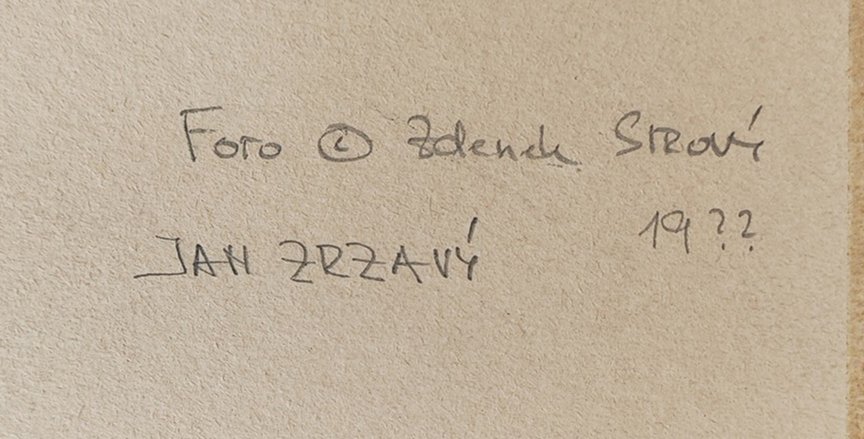 Foto © Zdenek Sirový
19??
JAN ZRZAVÝ